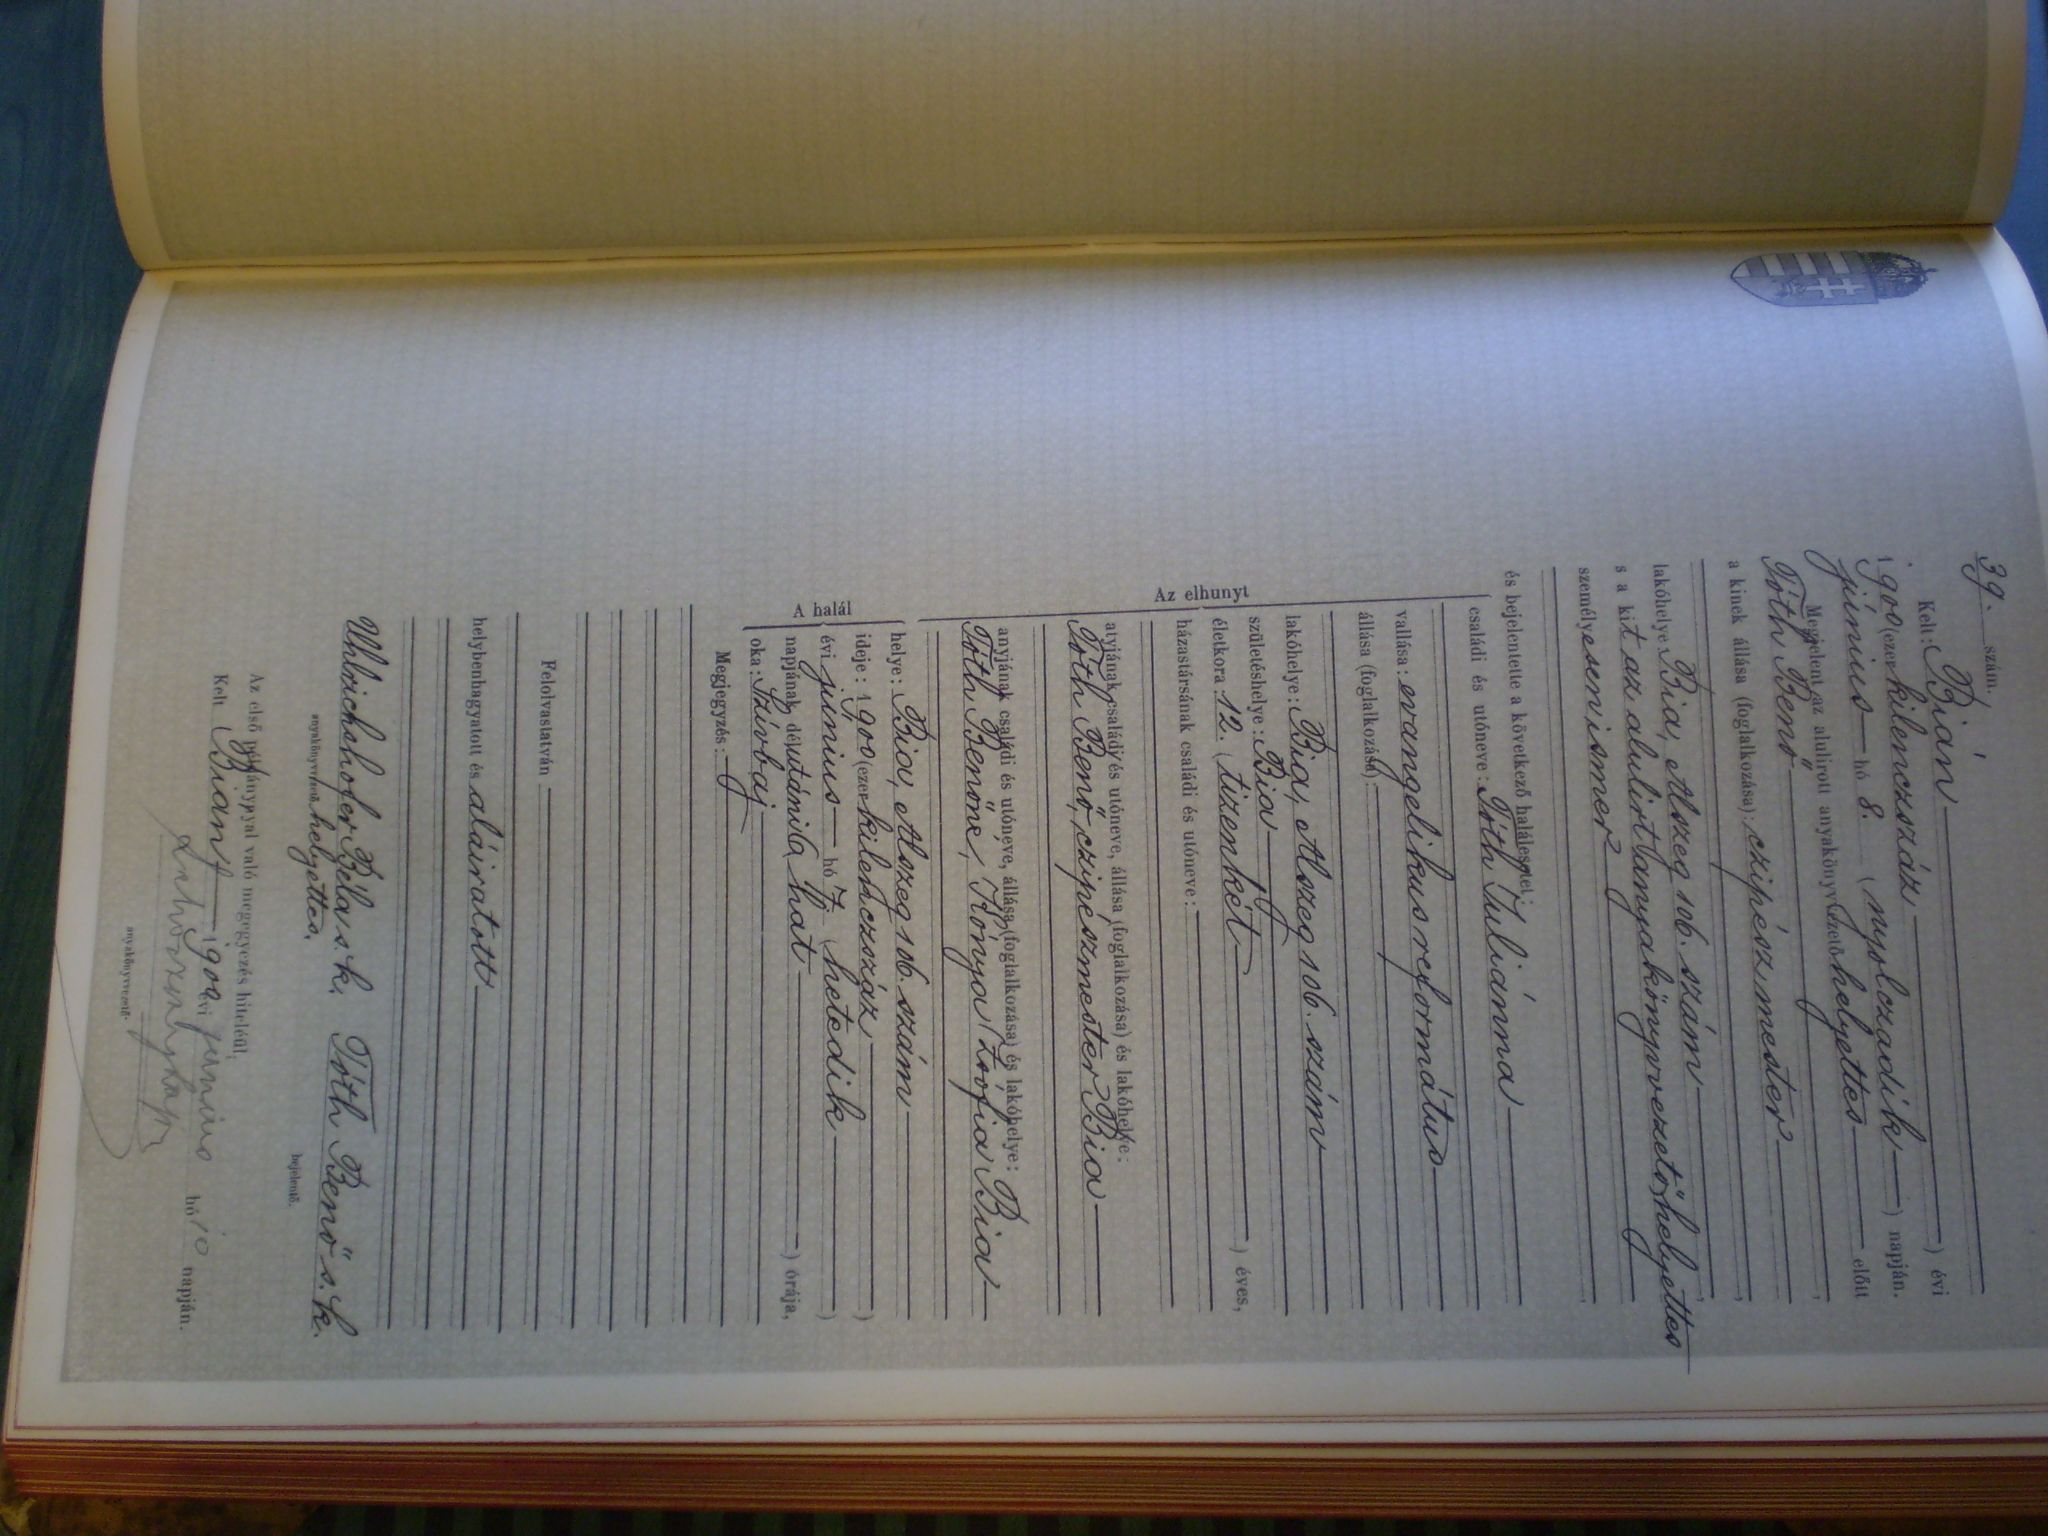 39. szám.
Kelt: Bián
1900 (ezer kilenczszáz) évi
június hó 8. (nyolczadik) napján.
Megjelent az alulirott anyakönyvvezető helyettes előtt
Tóth Benő
a kinek állása (foglalkozása): czipész mester,
lakóhelye Bia, Alszeg 106. szám,
s a kit az alulirt anyakönyvvezető helyettes
személyesen ismer,
és bejelentette a következő halálesetet:
Az elhunyt
családi és utóneve: Tóth Juliánna
vallása: evangelikus református
állása (foglalkozása):
lakóhelye: Bia, Alszeg 106. szám
születéshelye: Bia
életkora: 12. (tizenkét) éves,
házastársának családi és utóneve:
atyjának családi és utóneve, állása (foglalkozása) és lakóhelye:
Tóth Benő, czipész mester Bia
anyjának családi és utóneve, állása (foglalkozása) és lakóhelye:
Tóth Benőné, Kónya Zsofia Bia
A halál
helye: Bia, Alszeg 106. szám
ideje: 1900 (ezer kilenczszáz)
évi június hó 7. (hetedik)
napjának délutáni 6 (hat) órája,
oka: Szívbaj
Megjegyzés:
Felolvastatván
helybenhagyatott és aláiratott
Ulbrichshofer Béla s. k. Tóth Benő s. k.
anyakönyvvezető helyettes. bejelentő.
Az első példánypyal való megegyezés hiteléül,
Kelt Bián 1900 évi június hó 10 napján.
anyakönyvvezető.